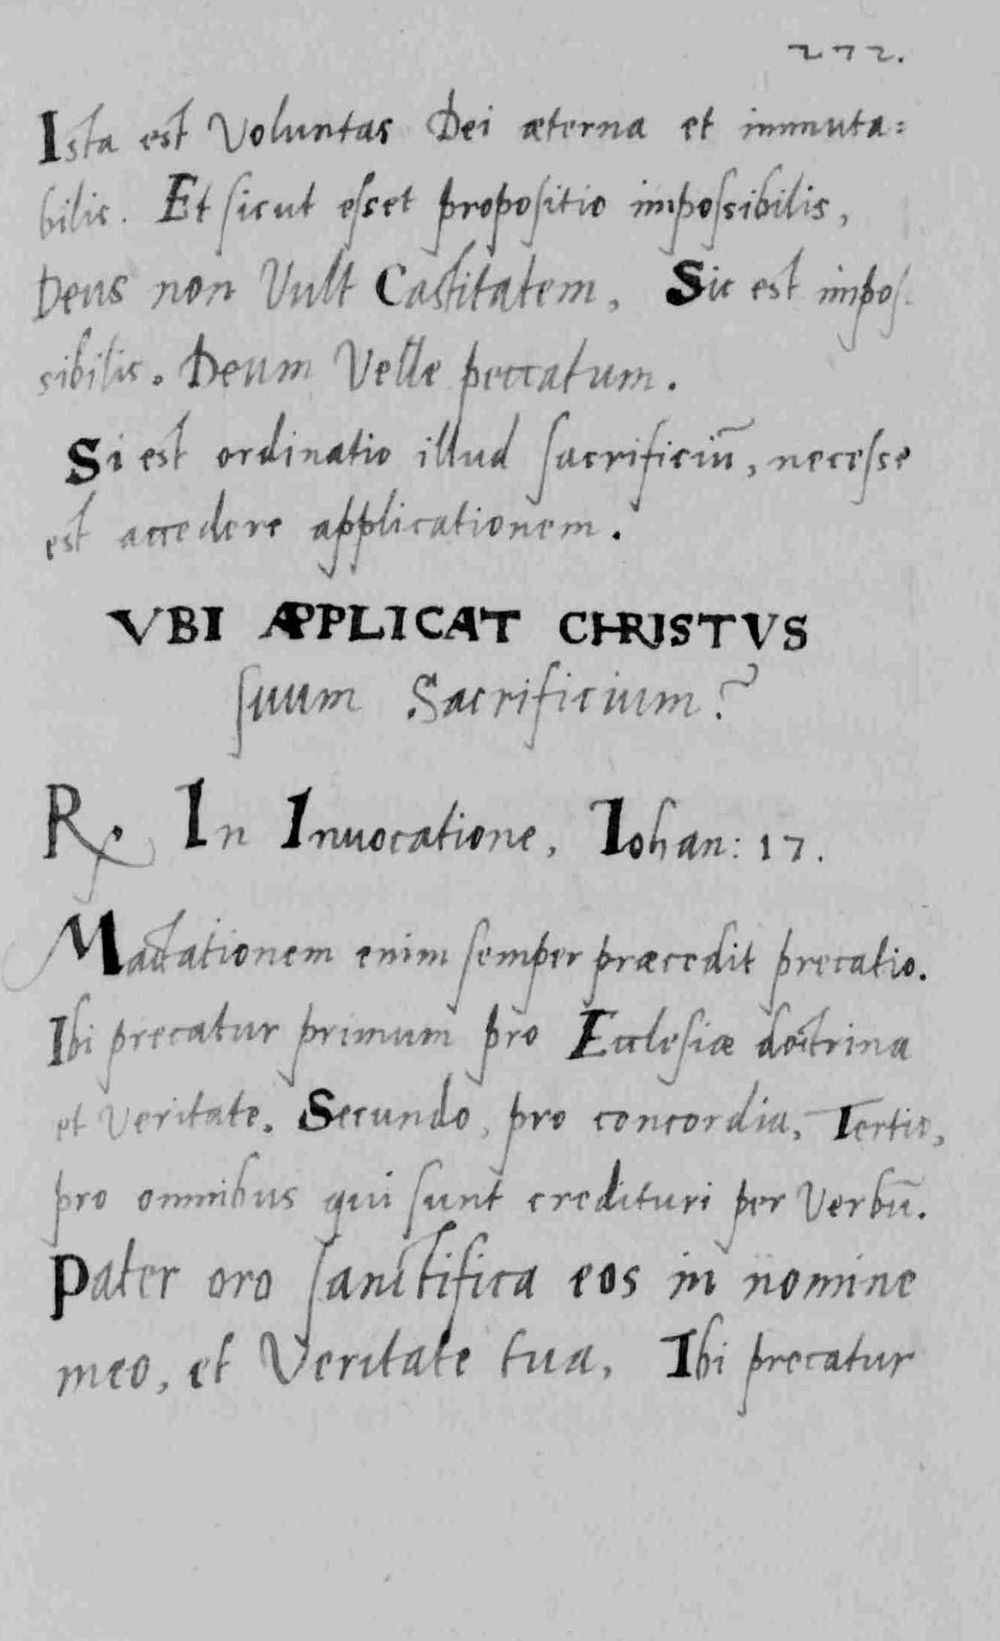 272.
Ista est Voluntas Dei æterna et immuta=
bilis. Et sicut esset propositio impossibilis,
Deus non Vult Castitatem, Sic est impos-
sibilis. Deum Velle peccatum.
Si est ordinatio illud sacrificiū, necesse
est accedere applicationem.
VBI APPLICAT CHRISTVS
suum Sacrificium?
R. In Invocatione, Iohan: 17.
Mactationem enim semper præcedit precatio.
Ibi precatur primum pro Ecclesiæ doctrina
et Veritate. Secundo, pro concordia, Tertio,
pro omnibus qui sunt credituri per Verbū.
Pater oro sanctifica eos in nomine
meo, et Veritate tua, Ibi precatur